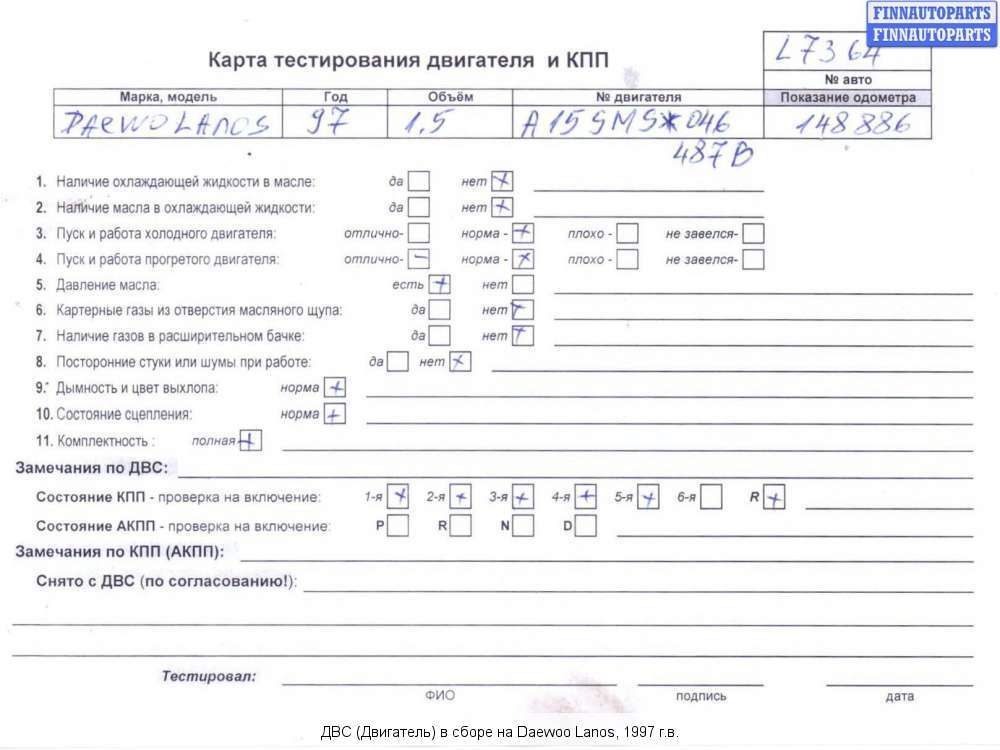 FINNAUTOPARTS
FINNAUTOPARTS
L7364
Карта тестирования двигателя и КПП
№ авто
Марка, модель Год Объём № двигателя Показание одометра
DAEWO LANOS 97 1,5 A15SMS*046 148886
487B
1. Наличие охлаждающей жидкости в масле: да нет +
2. Наличие масла в охлаждающей жидкости: да нет +
3. Пуск и работа холодного двигателя: отлично- норма - + плохо - не завелся-
4. Пуск и работа прогретого двигателя: отлично- – норма - + плохо - не завелся-
5. Давление масла: есть + нет
6. Картерные газы из отверстия масляного щупа: да нет +
7. Наличие газов в расширительном бачке: да нет +
8. Посторонние стуки или шумы при работе: да нет +
9. Дымность и цвет выхлопа: норма +
10. Состояние сцепления: норма +
11. Комплектность : полная +
Замечания по ДВС:
Состояние КПП - проверка на включение: 1-я + 2-я + 3-я + 4-я + 5-я + 6-я R +
Состояние АКПП - проверка на включение: P R N D
Замечания по КПП (АКПП):
Снято с ДВС (по согласованию!):
Тестировал:
ФИО подпись дата
ДВС (Двигатель) в сборе на Daewoo Lanos, 1997 г.в.